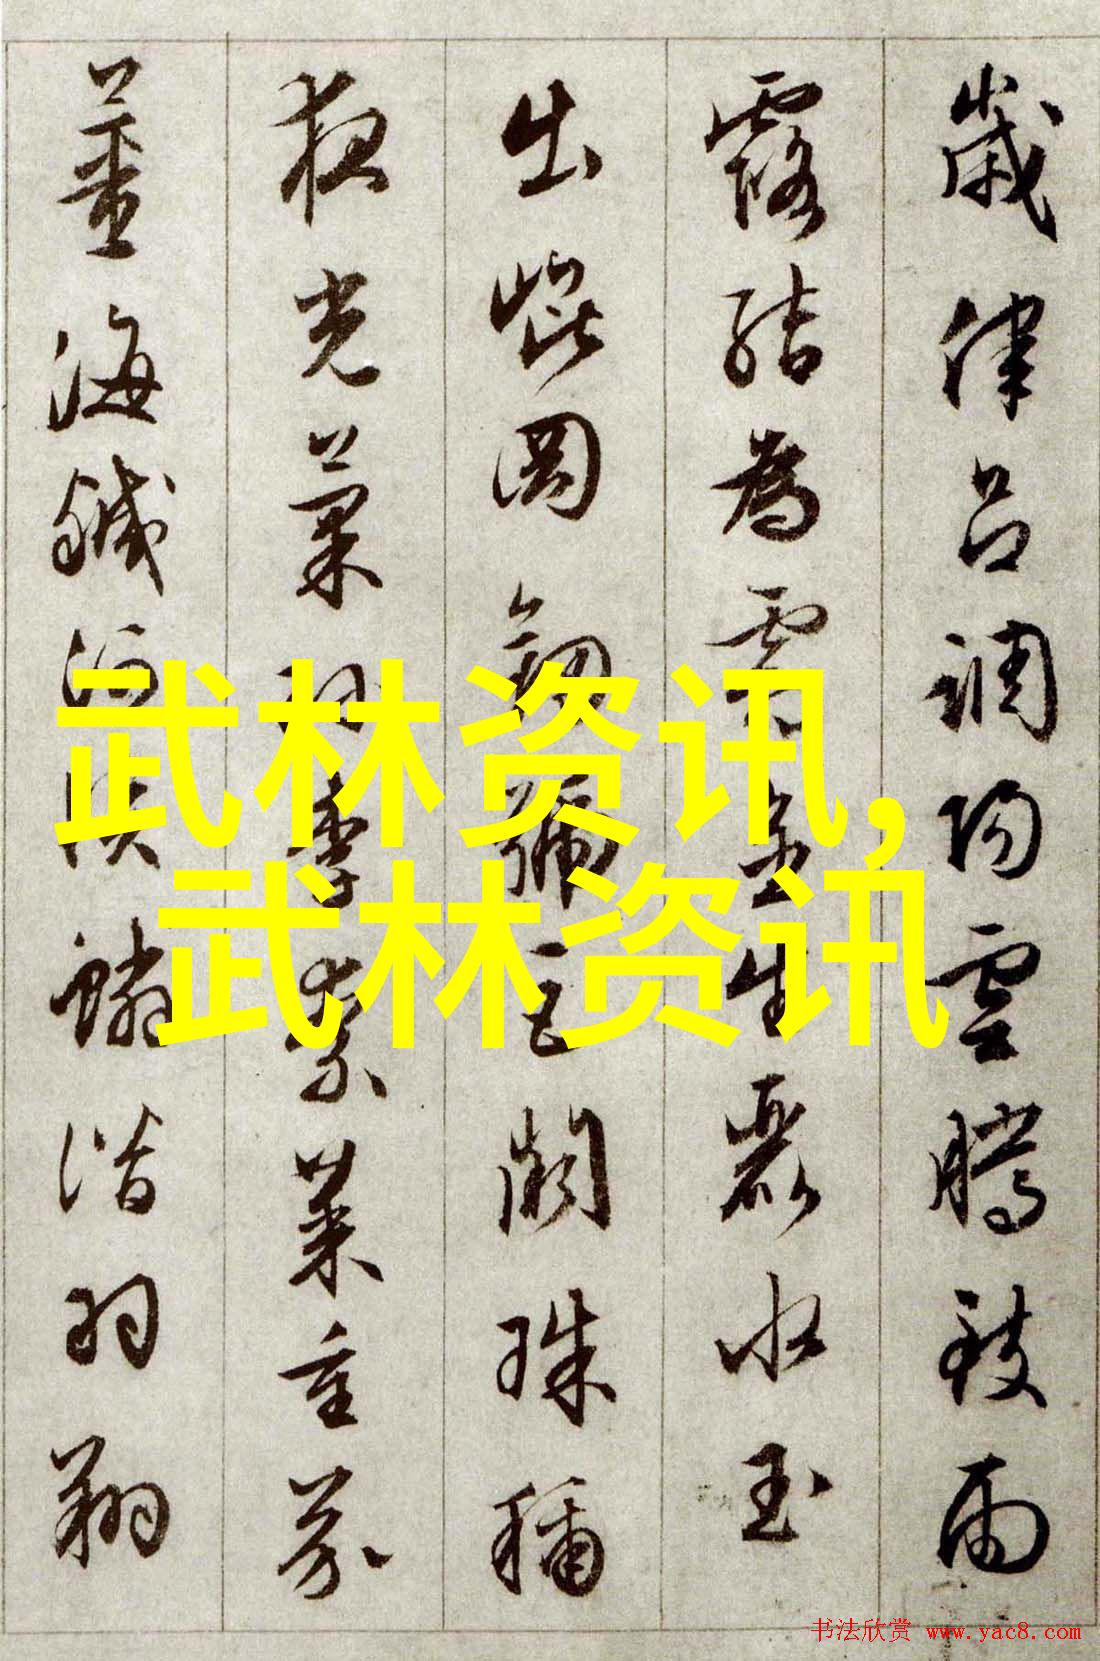 歲律呂調陽雲騰致雨
露結為霜金生麗水玉
出崐岡劒號巨闕珠稱
夜光菓珍李柰菜重芥
薑海鹹河淡鱗潛羽翔
武林资讯,
武林资讯
书法欣赏 www.yac8.com